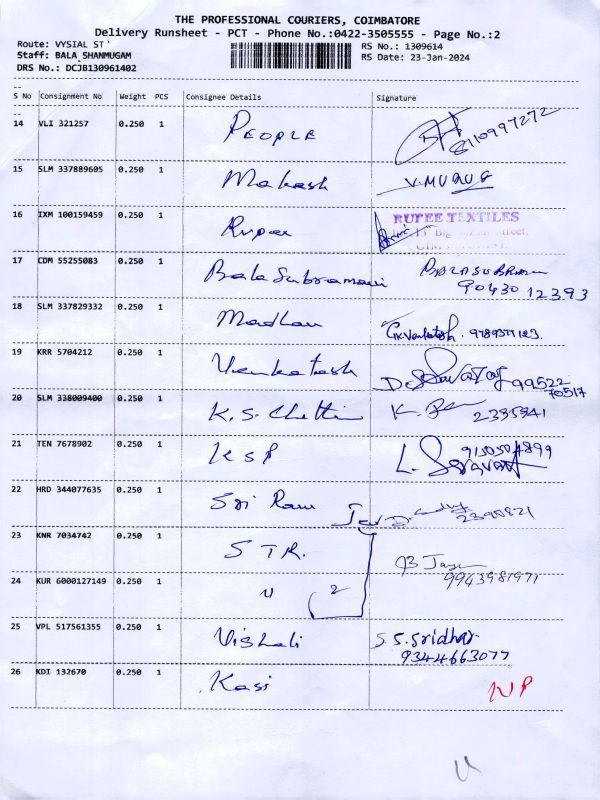 THE PROFESSIONAL COURIERS, COIMBATORE
Delivery Runsheet - PCT - Phone No.:0422-3505555 - Page No.:2
Route: VYSIAL ST
RS No.: 1309614
Staff: BALA SHANMUGAM
RS Date: 23-Jan-2024
DRS No.: DCJB130961402
S No Consignment No Weight PCS Consignee Details Signature
14 VLI 321257 0.250 1 PEOPLE 8110997272
15 SLM 337889605 0.250 1 Mahesh V.MURUG
16 IXM 100159459 0.250 1 Rupee RUPEE TEXTILES
17 CDM 55255083 0.250 1 Bala Subramani BALASUBRAM
90430 12393
18 SLM 337829332 0.250 1 Madhav Venkatesh. 9789377123.
19 KRR 5704212 0.250 1 Venkatesh 99522
70517
20 SLM 338009400 0.250 1 K.S. Chetti K. 2335341
21 TEN 7678902 0.250 1 KSP L. Saravan
22 HRD 344077635 0.250 1 Sri Ram 2390821
23 KNR 7034742 0.250 1 STR.
24 KUR 6000127149 0.250 1 " 2 9943981971
25 VPL 517561355 0.250 1 Vishali S.S.Sridhar
9344663077
26 KDI 132670 0.250 1 Kasi NP